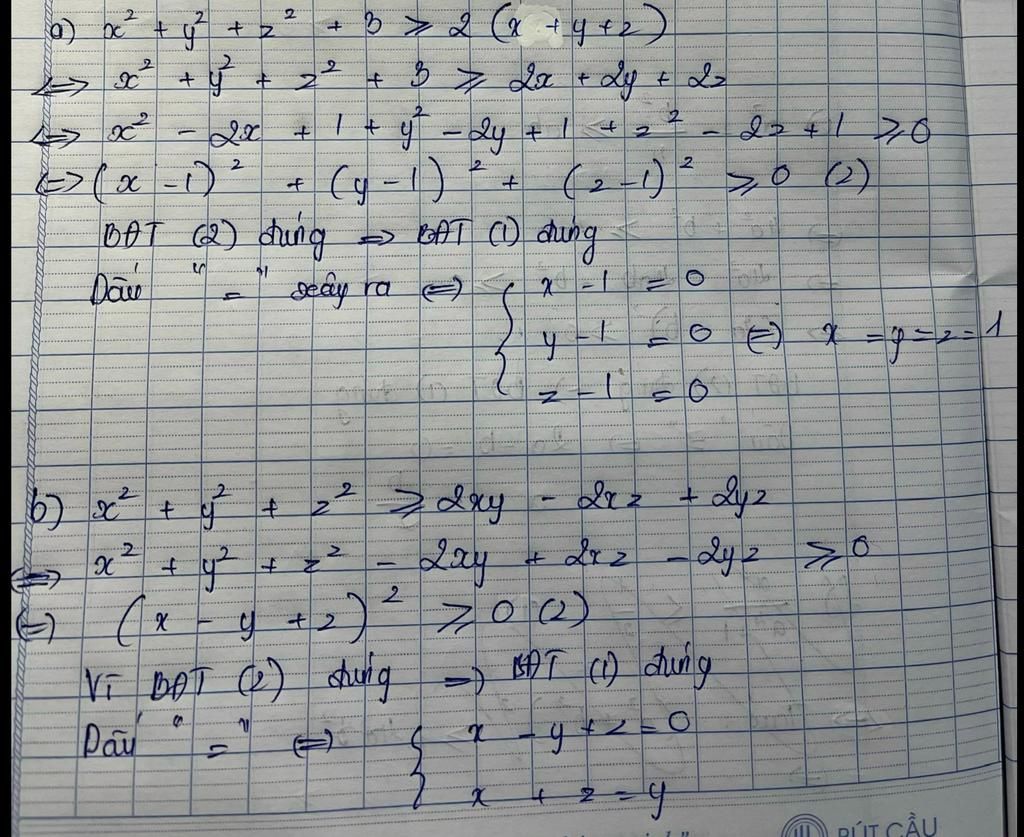 a) x² + y² + z² + 3 ≥ 2 (x + y + z)
⇔ x² + y² + z² + 3 ≥ 2x + 2y + 2z
⇔ x² - 2x + 1 + y² - 2y + 1 + z² - 2z + 1 ≥ 0
⇔ (x - 1)² + (y - 1)² + (z - 1)² ≥ 0 (2)
BĐT (2) đúng ⇒ BĐT (1) đúng
Dấu " = " xảy ra ⇔ { x - 1 = 0
y - 1 = 0 ⇔ x = y = z = 1
z - 1 = 0
b) x² + y² + z² ≥ 2xy - 2xz + 2yz
⇔ x² + y² + z² - 2xy + 2xz - 2yz ≥ 0
⇔ (x - y + z)² ≥ 0 (2)
Vì BĐT (2) đúng ⇒ BĐT (1) đúng
Dấu " = " ⇔ { x - y + z = 0
x + z = y
BÚT CẦU